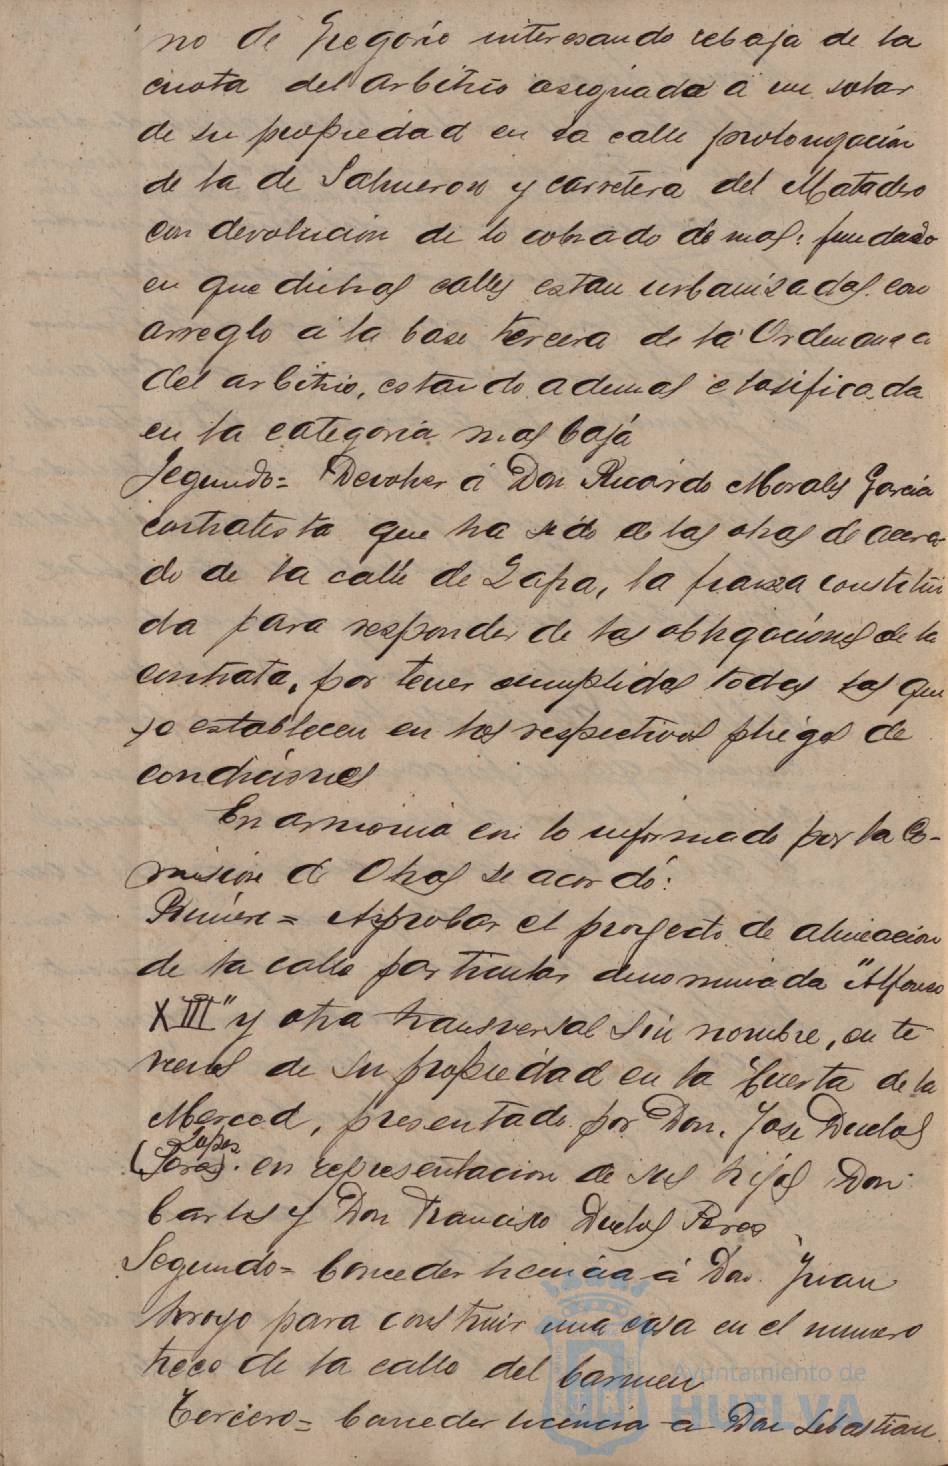 no de Gregorio interesando rebaja de la
cuota del arbitrio asignada á un solar
de su propiedad en la calle prolongación
de la de Salmeron y carretera del Matadero
con devolucion de lo cobrado de mas: fundado
en que dichas calles estan urbanizadas con
arreglo á la base tercera de la Ordenanza
del arbitrio, estando ademas clasificada
en la categoria mas baja
Segundo= Devolver á Don Ricardo Morales Garcia
contratista que ha sido de las obras de acera-
do de la calle de Zafra, la fianza constitui
da para responder de las obligaciones de la
contrata, por tener cumplidas todas las que
se establecen en los respectivos pliegos de
condiciones
En armonia con lo informado por la Co-
mision de Obras se acordó:
Primero= Aprobar el proyecto de alineacion
de la calle particular denominada "Alfonso
XIII" y otra transversal sin nombre, en te
rrenos de su propiedad en la huerta de la
Merced, presentado por Don. Jose Duclos
Lopez
(Peres). en representacion de sus hijos Don
Carlos y Don Francisco Duclos Peres
Segundo= Conceder licencia á Don Juan
Arroyo para construir una casa en el numero
trece de la calle del Carmen
Tercero= Conceder licencia a Don Sebastian
Ayuntamiento de
HUELVA